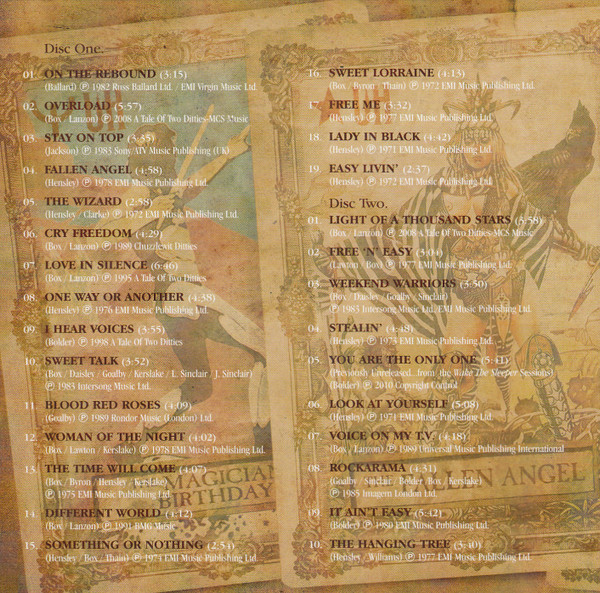 Disc One.
01. ON THE REBOUND (3:15)
(Ballard) ℗ 1982 Russ Ballard Ltd. / EMI Virgin Music Ltd
02. OVERLOAD (5:57)
(Box / Lanzon) ℗ 2008 A Tale Of Two Ditties-MCS Music
03. STAY ON TOP (3:35)
(Jackson) ℗ 1983 Sony/ATV Music Publishing (UK)
04. FALLEN ANGEL (4:58)
(Hensley) ℗ 1978 EMI Music Publishing Ltd.
05. THE WIZARD (2:58)
(Hensley / Clarke) ℗ 1972 EMI Music Publishing Ltd.
06. CRY FREEDOM (4:29)
(Box / Lanzon) ℗ 1989 Chuzzlewit Ditties
07. LOVE IN SILENCE (6:46)
(Box / Lanzon) ℗ 1995 A Tale Of Two Ditties
08. ONE WAY OR ANOTHER (4:38)
(Hensley) ℗ 1976 EMI Music Publishing Ltd.
09. I HEAR VOICES (3:55)
(Bolder) ℗ 1998 A Tale Of Two Ditties
10. SWEET TALK (3:52)
(Box / Daisley / Goalby / Kerslake / L. Sinclair / J. Sinclair)
℗ 1983 Intersong Music Ltd.
11. BLOOD RED ROSES (4:09)
(Goalby) ℗ 1989 Rondor Music (London) Ltd.
12. WOMAN OF THE NIGHT (4:02)
(Box / Lawton / Kerslake) ℗ 1978 EMI Music Publishing Ltd.
13. THE TIME WILL COME (4:07)
(Box / Byron / Hensley / Kerslake)
℗ 1975 EMI Music Publishing Ltd.
14. DIFFERENT WORLD (4:12)
(Box / Lanzon) ℗ 1991 BMG Music
15. SOMETHING OR NOTHING (2:54)
(Hensley / Box / Thain) ℗ 1974 EMI Music Publishing Ltd.
MAGICIAN
BIRTHDAY
16. SWEET LORRAINE (4:13)
(Box / Byron / Thain) ℗ 1972 EMI Music Publishing Ltd.
17. FREE ME (3:32)
(Hensley) ℗ 1977 EMI Music Publishing Ltd.
18. LADY IN BLACK (4:42)
(Hensley) ℗ 1971 EMI Music Publishing Ltd.
19. EASY LIVIN' (2:37)
(Hensley) ℗ 1972 EMI Music Publishing Ltd.
Disc Two.
01. LIGHT OF A THOUSAND STARS (3:58)
(Box / Lanzon) ℗ 2008 A Tale Of Two Ditties-MCS Music
02. FREE 'N' EASY (3:04)
(Lawton / Box) ℗ 1977 EMI Music Publishing Ltd.
03. WEEKEND WARRIORS (3:50)
(Box / Daisley / Goalby / Sinclair)
℗ 1983 Intersong Music Ltd, EMI Music Publishing Ltd.
04. STEALIN' (4:48)
(Hensley) ℗ 1973 EMI Music Publishing Ltd.
05. YOU ARE THE ONLY ONE (5:41)
(Previously Unreleased...from the Wake The Sleeper Sessions)
(Bolder) ℗ 2010 Copyright Control
06. LOOK AT YOURSELF (5:08)
(Hensley) ℗ 1971 EMI Music Publishing Ltd.
07. VOICE ON MY T.V. (4:18)
(Box / Lanzon) ℗ 1989 Universal Music Publishing International
08. ROCKARAMA (4:31)
(Goalby / Sinclair / Bolder / Box / Kerslake)
℗ 1985 Imagem London Ltd.
09. IT AIN'T EASY (5:42)
(Bolder) ℗ 1980 EMI Music Publishing Ltd.
10. THE HANGING TREE (3:40)
(Hensley / Williams) ℗ 1977 EMI Music Publishing Ltd.
LEN ANGEL